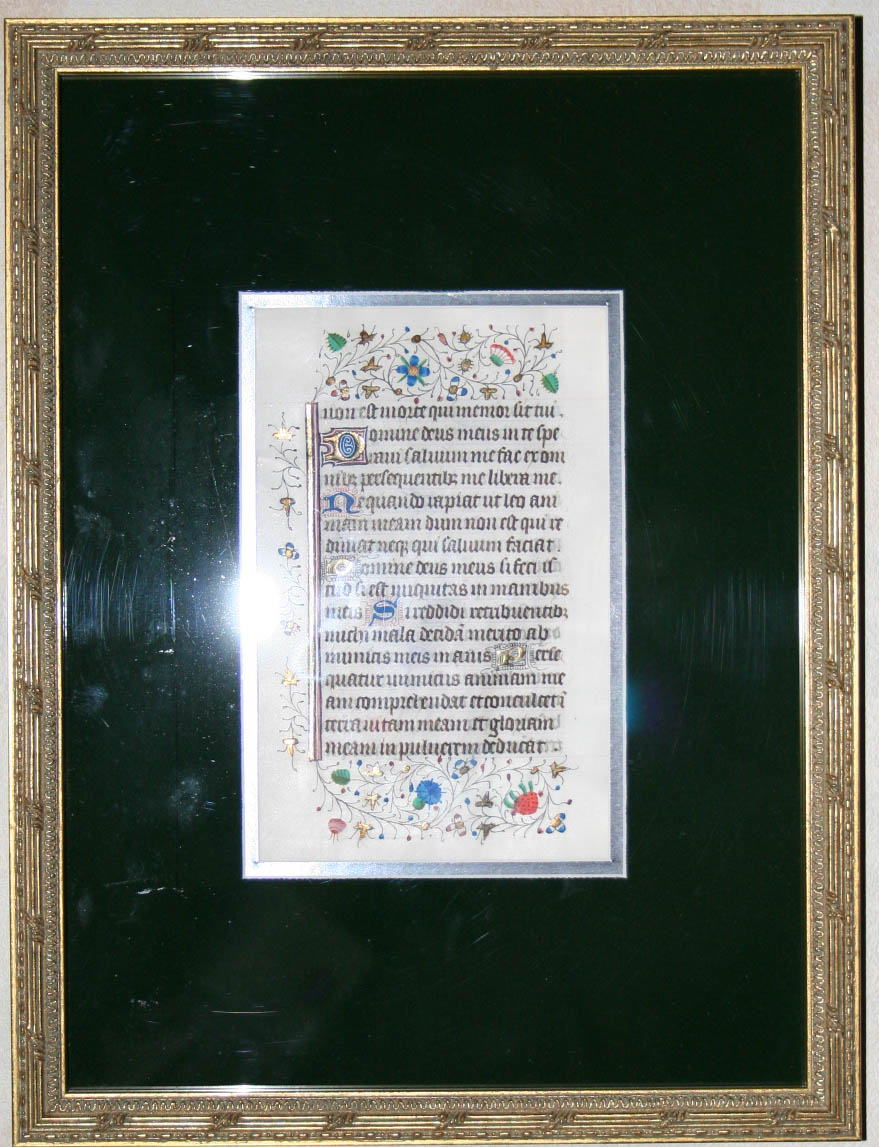 non est morte qui memor sit tui.
Domine deus meus in te spe
ravi saluum me fac ex om
nibꝫ persequentibꝫ me libera me.
Nequando rapiat ut leo ani
mam meam dum non est qui re
dimat neqꝫ qui saluum faciat.
Domine deus meus si feci is
tud si est iniquitas in manibus
meis Si reddidi retribuentibꝫ
michi mala decidā merito ab
inimicis meis inanis Perse
quatur inimicus animam me
am comprehendat et conculcet ī
terra uitam meam et gloriam
meam in puluerem deducat